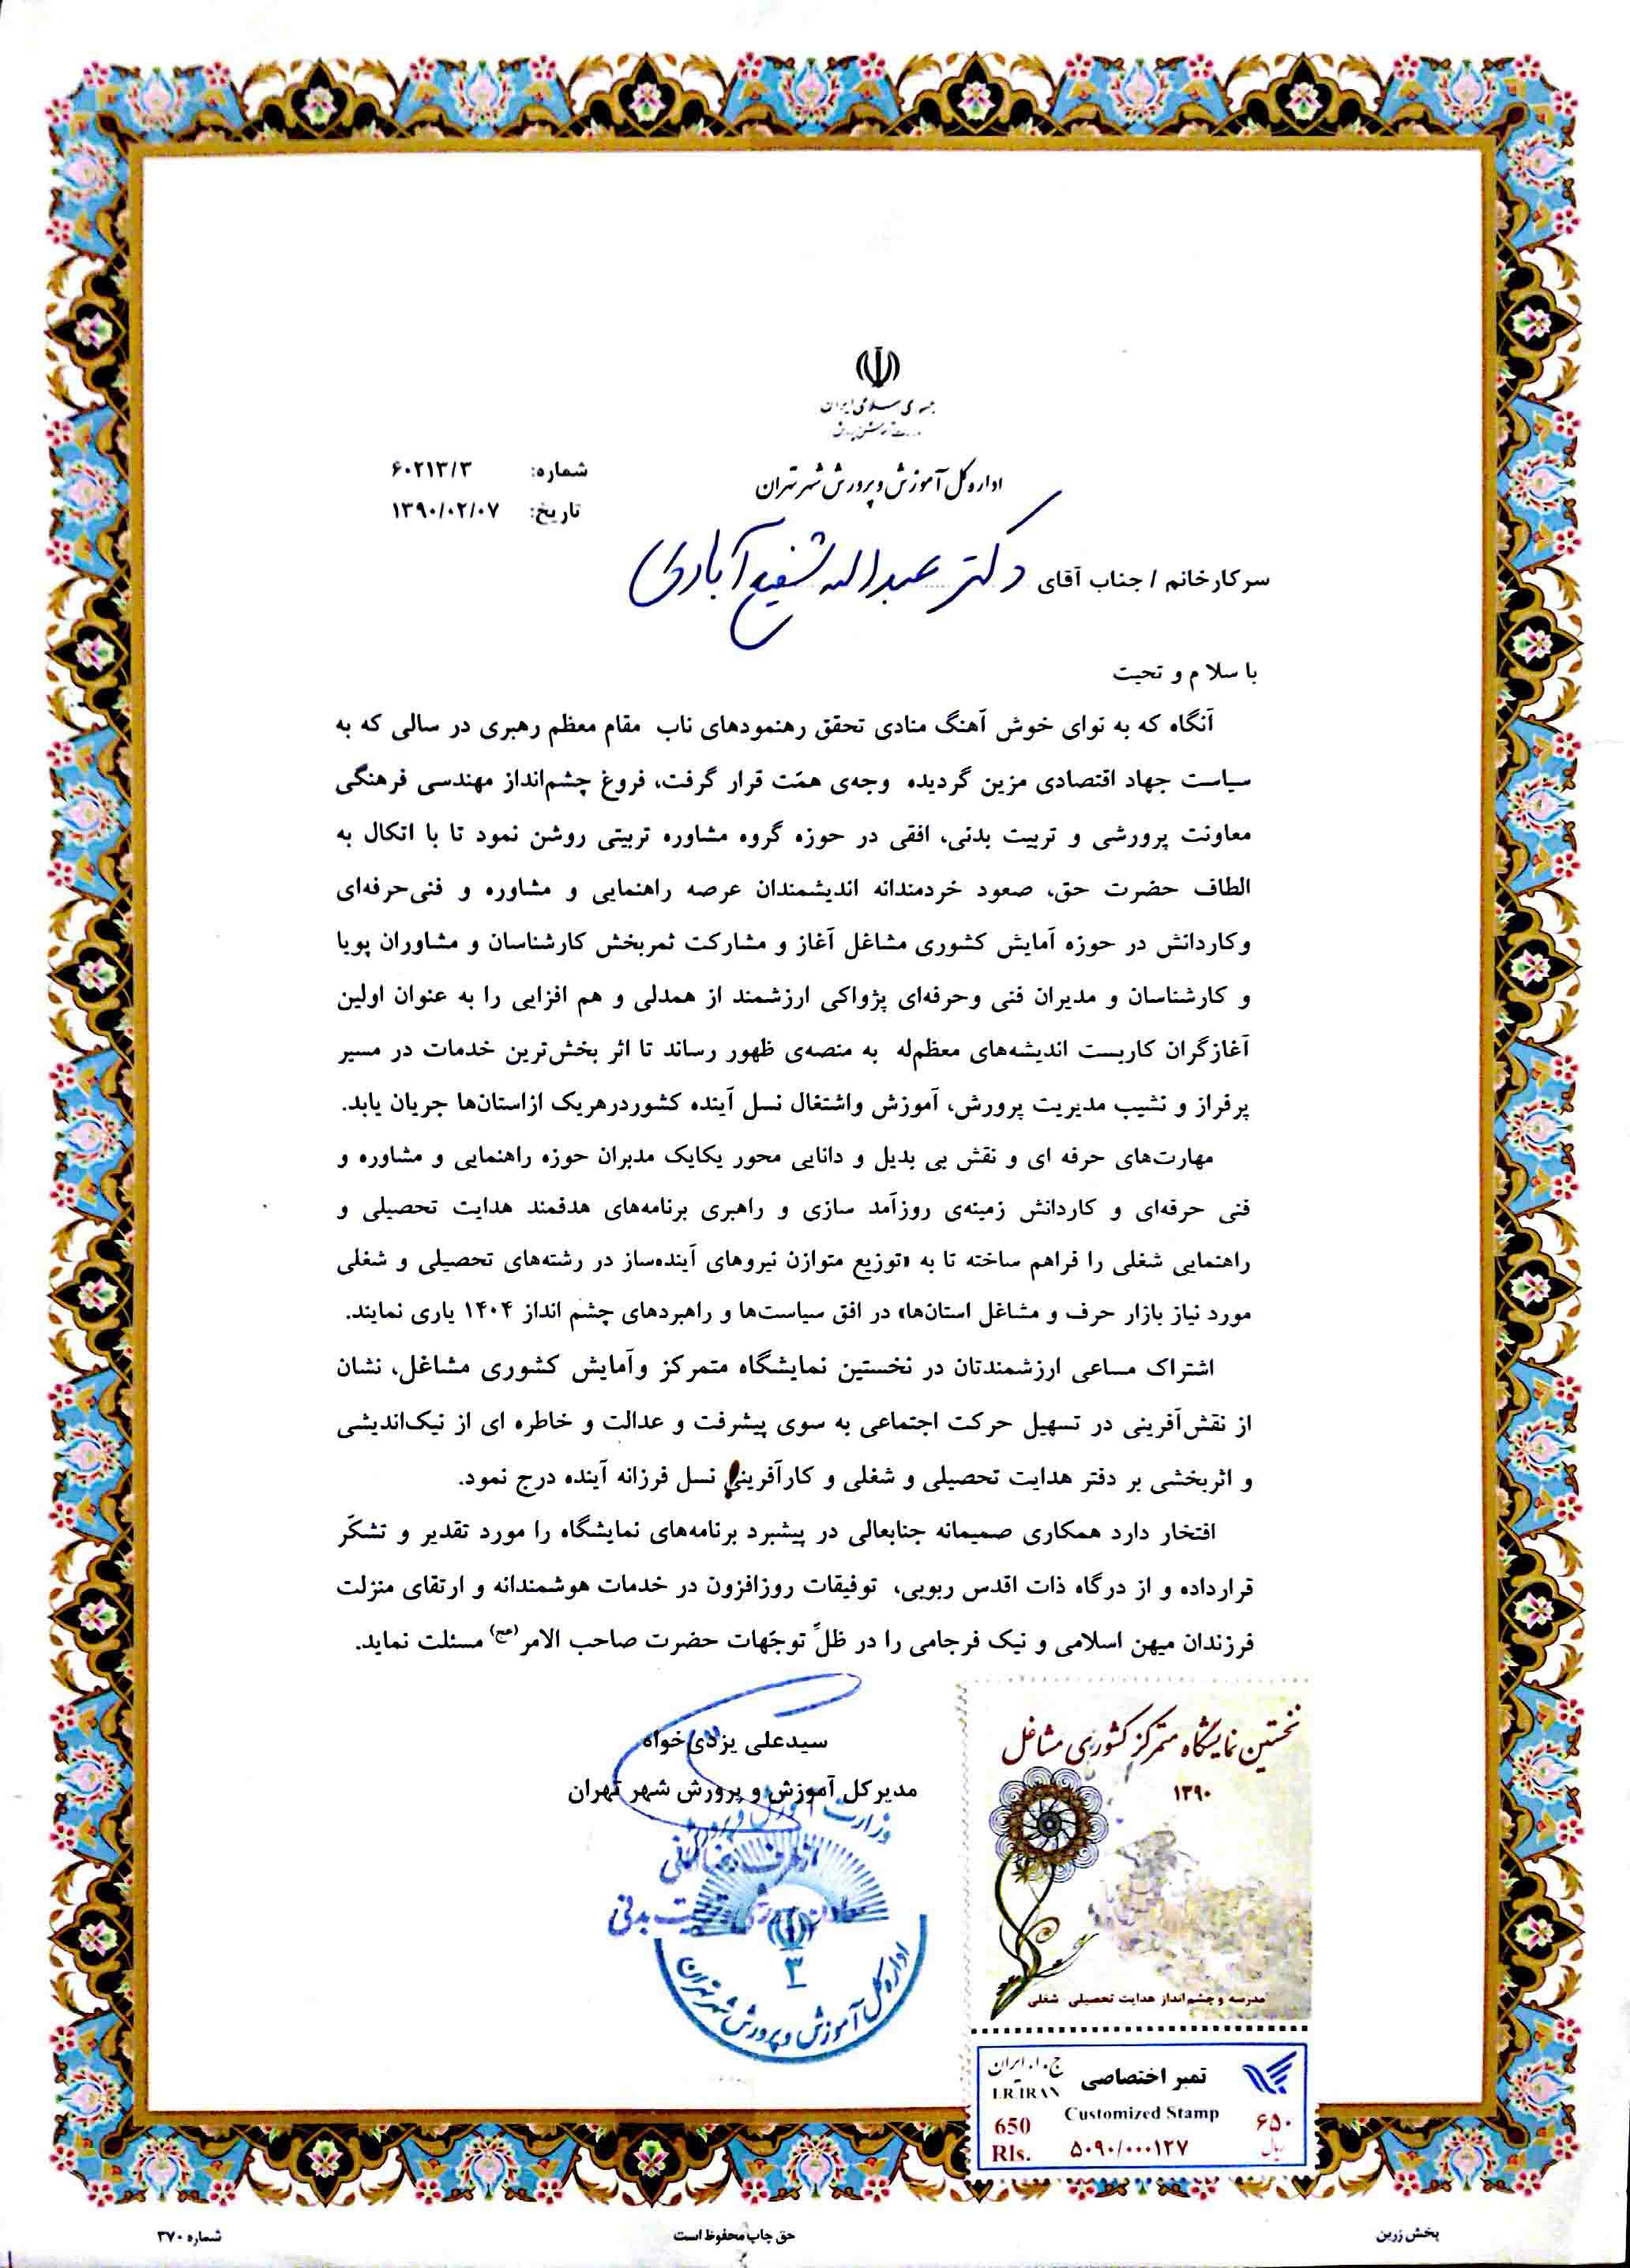 جمهوری اسلامی ایران
وزارت آموزش و پرورش
اداره کل آموزش و پرورش شهر تهران
شماره: ۶۰۲۱۳/۳
تاریخ: ۱۳۹۰/۰۲/۰۷
سرکارخانم / جناب آقای دکتر عبداله شفیع آبادی
با سلام و تحیت
آنگاه که به نوای خوش آهنگ منادی تحقق رهنمودهای ناب مقام معظم رهبری در سالی که به
سیاست جهاد اقتصادی مزین گردیده وجه‌ی همّت قرار گرفت، فروغ چشم‌انداز مهندسی فرهنگی
معاونت پرورشی و تربیت بدنی، افقی در حوزه گروه مشاوره تربیتی روشن نمود تا با اتکال به
الطاف حضرت حق، صعود خردمندانه اندیشمندان عرصه راهنمایی و مشاوره و فنی‌حرفه‌ای
وکاردانش در حوزه آمایش کشوری مشاغل آغاز و مشارکت ثمربخش کارشناسان و مشاوران پویا
و کارشناسان و مدیران فنی وحرفه‌ای پژواکی ارزشمند از همدلی و هم افزایی را به عنوان اولین
آغازگران کاربست اندیشه‌های معظم‌له به منصه‌ی ظهور رساند تا اثر بخش‌ترین خدمات در مسیر
پرفراز و نشیب مدیریت پرورش، آموزش واشتغال نسل آینده کشوردرهریک ازاستان‌ها جریان یابد.
مهارت‌های حرفه ای و نقش بی بدیل و دانایی محور یکایک مدیران حوزه راهنمایی و مشاوره و
فنی حرفه‌ای و کاردانش زمینه‌ی روزآمد سازی و راهبری برنامه‌های هدفمند هدایت تحصیلی و
راهنمایی شغلی را فراهم ساخته تا به «توزیع متوازن نیروهای آینده‌ساز در رشته‌های تحصیلی و شغلی
مورد نیاز بازار حرف و مشاغل استان‌ها» در افق سیاست‌ها و راهبردهای چشم انداز ۱۴۰۴ یاری نمایند.
اشتراک مساعی ارزشمندتان در نخستین نمایشگاه متمرکز وآمایش کشوری مشاغل، نشان
از نقش‌آفرینی در تسهیل حرکت اجتماعی به سوی پیشرفت و عدالت و خاطره ای از نیک‌اندیشی
و اثربخشی بر دفتر هدایت تحصیلی و شغلی و کارآفرینی نسل فرزانه آینده درج نمود.
افتخار دارد همکاری صمیمانه جنابعالی در پیشبرد برنامه‌های نمایشگاه را مورد تقدیر و تشکّر
قرارداده و از درگاه ذات اقدس ربوبی، توفیقات روزافزون در خدمات هوشمندانه و ارتقای منزلت
فرزندان میهن اسلامی و نیک فرجامی را در ظلّ توجّهات حضرت صاحب الامر(عج) مسئلت نماید.
سیدعلی یزدی‌خواه
مدیرکل آموزش و پرورش شهر تهران
وزارت آموزش و پرورش
از طرف
تربیت بدنی
۳
اداره کل آموزش و پرورش شهر تهران
نخستین نمایشگاه متمرکز کشوری مشاغل
۱۳۹۰
مدرسه و چشم‌انداز هدایت تحصیلی - شغلی
ج.ا.ایران
I.R.IRAN
تمبر اختصاصی
Customized Stamp
650
Rls.
۵۰۹۰/۰۰۰۱۲۷
۶۵۰
ریال
شماره ۳۷۰
حق چاپ محفوظ است
پخش زرین